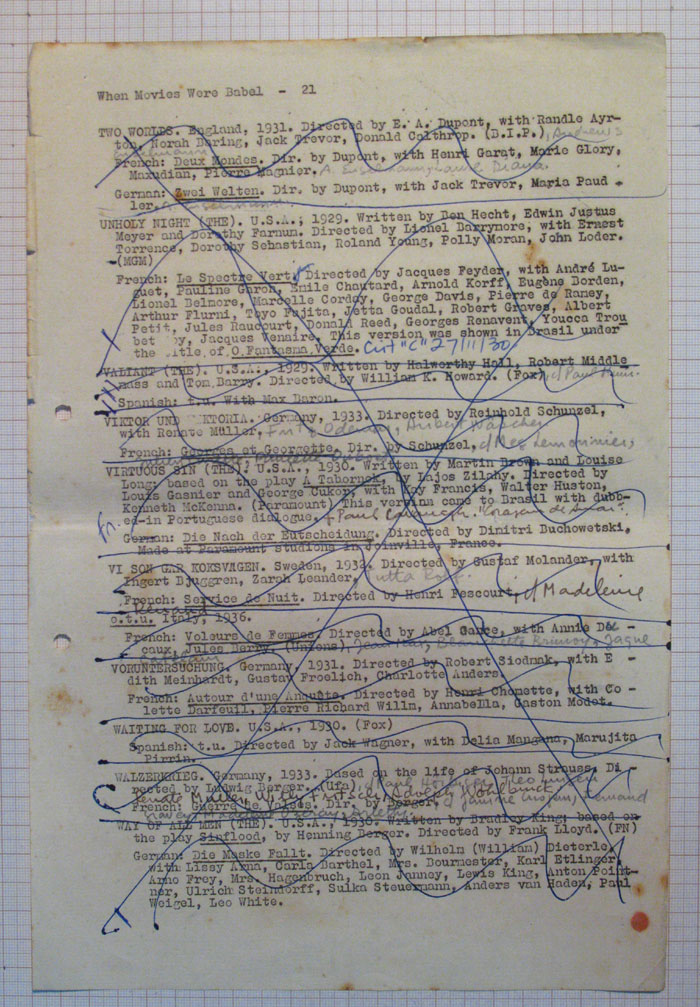 When Movies Were Babel - 21
TWO WORLDS. England, 1931. Directed by E. A. Dupont, with Randle Ayr-
ton, Norah Baring, Jack Trevor, Donald Calthrop. (B.I.P.), Andrews
French: Deux Mondes. Dir. by Dupont, with Henri Garat, Marie Glory,
Maxudian, Pierre Magnier,
German: Zwei Welten. Dir. by Dupont, with Jack Trevor, Maria Paud
ler.
UNHOLY NIGHT (THE). U.S.A., 1929. Written by Ben Hecht, Edwin Justus
Meyer and Dorothy Farnum. Directed by Lionel Barrymore, with Ernest
Torrence, Dorothy Sebastian, Roland Young, Polly Moran, John Loder.
(MGM)
French: Le Spectre Vert. Directed by Jacques Feyder, with André Lu-
guet, Pauline Garon, Emile Chautard, Arnold Korff, Eugène Borden,
Lionel Belmore, Marcelle Corday, George Davis, Pierre de Ramey,
Arthur Flurni, Toyo Fujita, Jetta Goudal, Robert Graves, Albert
Petit, Jules Raucourt, Donald Reed, Georges Renavent, Youcca Trou
bet by, Jacques Venaire. This version was shown in Brasil under
the title of O Fantasma Verde. Cin "C" 27/11/30
VALIANT (THE). U.S.A., 1929. Written by Halworthy Hall, Robert Middle
mass and Tom Barry. Directed by William K. Howard. (Fox), c/ Paul Muni.
Spanish: t.u. With Max Baron.
VIKTOR UND VIKTORIA. Germany, 1933. Directed by Reinhold Schunzel,
with Renate Müller, Fritz Odemar, Aribert Wäscher
French: Georges et Georgette. Dir. by Schunzel, c/ Meg Lemonnier,
VIRTUOUS SIN (THE). U.S.A., 1930. Written by Martin Brown and Louise
Long; based on the play A Tabornok, by Lajos Zilahy. Directed by
Louis Gasnier and George Cukor, with Kay Francis, Walter Huston,
Kenneth McKenna. (Paramount) This version came to Brasil with dubb-
ed-in Portuguese dialogue. + Paul Cavanagh.
Fr.
German: Die Nach der Eutscheidung. Directed by Dimitri Buchowetski,
Made at Paramount studions in Joinville, France.
VI SON GAR KOKSVAGEN. Sweden, 1932. Directed by Gustaf Molander, with
Ingert Bjuggren, Zarah Leander, Tutta Rolf.
French: Service de Nuit. Directed by Henri Fescourt, c/ Madeleine
o.t.u. Italy, 1936.
French: Voleurs de Femmes. Directed by Abel Gance, with Annie Du
caux, Jules Berry, (Unions), Jean Max, Blanchette Brunoy, Jaque
VORUNTERSUCHUNG. Germany, 1931. Directed by Robert Siodmak, with E -
dith Meinhardt, Gustav Froelich, Charlotte Anders.
French: Autour d'une Enquête. Directed by Henri Chomette, with Co -
lette Darfeuil, Pierre Richard Willm, Annabella, Gaston Modot.
WAITING FOR LOVE. U.S.A., 1930. (Fox)
Spanish: t.u. Directed by Jack Wagner, with Delia Mangana, Marujita
Pirrin.
WALZERKRIEG. Germany, 1933. Based on the life of Johann Strauss. Di -
rected by Ludwig Berger. (Ufa)
Renate Müller, Willy Fritsch, Adolf Wohlbruck
French: Guerre de Valses. Dir. by Berger,
WAY OF ALL MEN (THE). U.S.A., 1930. Written by Bradley King; based on
the play Sinflood, by Henning Berger. Directed by Frank Lloyd. (FN)
German: Die Maske Fallt. Directed by Wilhelm (William) Dieterle,
with Lissy Arna, Carla Barthel, Mrs. Bournester, Karl Etlinger,
Arno Frey, Mrs. Hagenbruch, Leon Janney, Lewis King, Anton Point-
ner, Ulrich Steindorff, Sulka Steuermann, Anders van Haden, Paul
Weigel, Leo White.